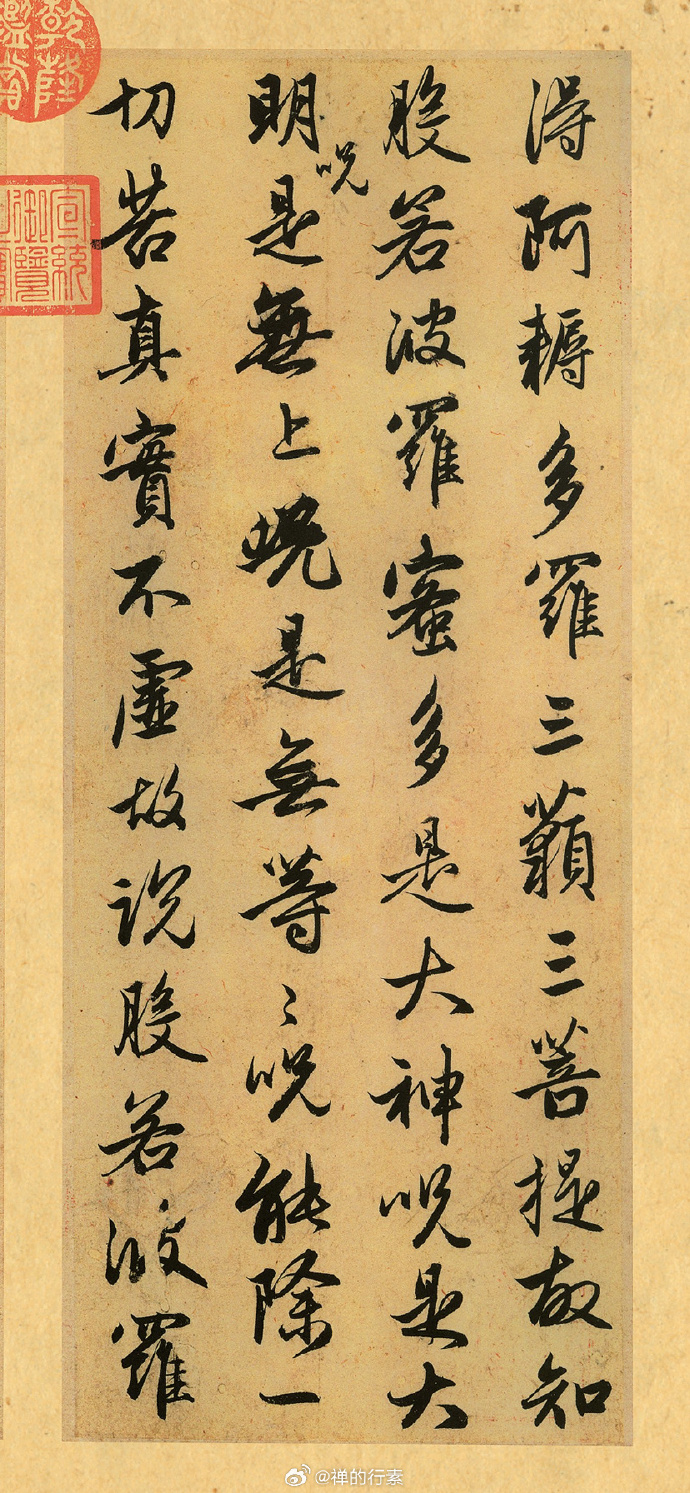 得阿耨多羅三藐三菩提故知
般若波羅蜜多是大神呪是大
明呪是無上呪是無等〻呪能除一
切苦真實不虛故說般若波羅
乾隆
宣統
御覽
@禅的行素